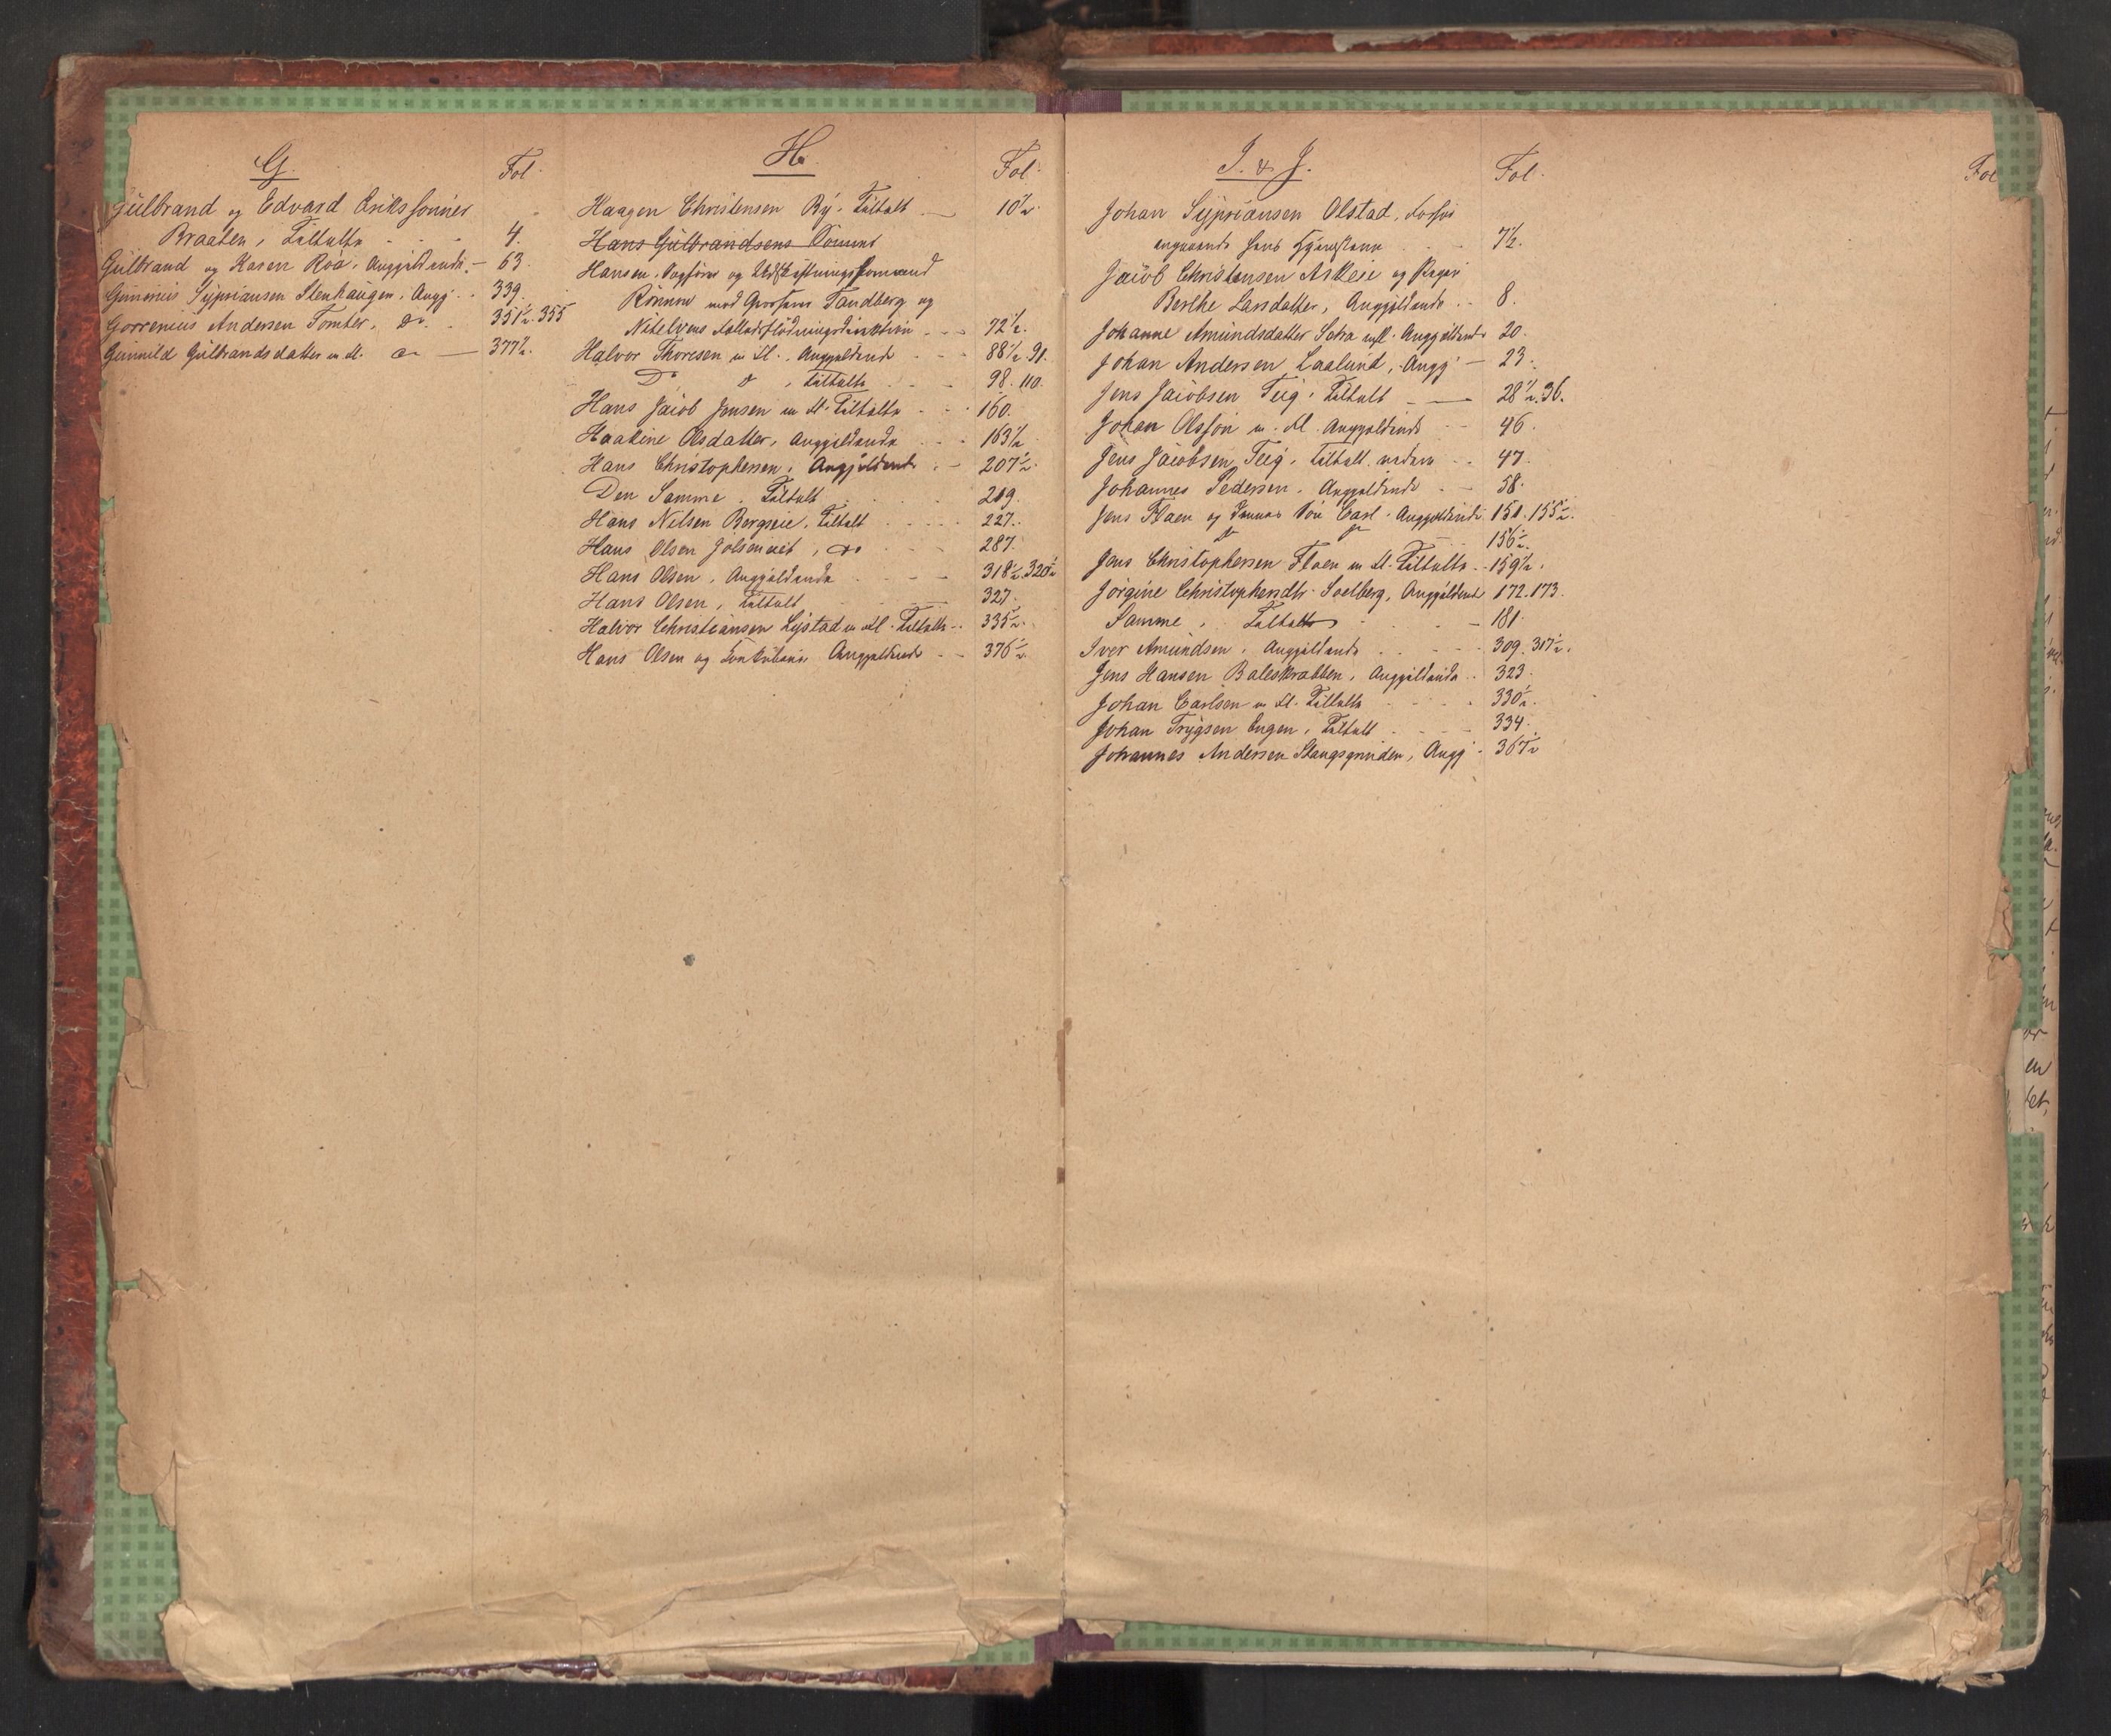 G.
Fol.
Gulbrand og Edvard Erikssønner
Braaten, Tiltalte 4.
Gulbrand og Karen Roa, Anggjældende 63.
Gunerius Sypriansen Stenhaugen, Angj. 339.
Gorrenius Andersen Tomter, do. 351½. 355
Gunnild Gulbrandsdatter m. fl. do 377½.
H.
Fol.
Haagen Christensen By, Tiltalt 10½.
Hans Gulbrandsens
Hansen, Sagfører og
med Tandberg og
Nitelvens Fællesflødningsdirektion 72½.
Halvor Thoresen m. fl., Anggjældende 88½. 91.
Do do, Tiltalte 98. 110.
Hans Jacob Jensen m. fl. Tiltalte 160.
Haakine Olsdatter, Anggjældende 163½
Hans Christophersen, Anggjeldende 207½.
Den Samme, Tiltalt 219.
Hans Nilsen Bergseie, Tiltalt 227.
Hans Olsen, do 287.
Hans Olsen, Anggjældende 318½. 320½
Hans Olsen, Tiltalt 327.
Halvor Christiansen Lystad m. fl. Tiltalte 335½.
Hans Olsen og Anggjældende 376½.
I. & J.
Fol.
Johan Sypriansen Olstad, Forhør
angaaende hans 7½.
Jacob Christensen Askeie og
Berthe Larsdatter, Anggjældende 8.
Johanne Amundsdatter m fl. Anggjældende 20.
Johan Andersen Laalund, Angg. 23.
Jens Jacobsen Teig, Tiltalt 28½. 36.
Johan Olssøn m. fl. Anggjældende 46.
Jens Jacobsen Teig, Tiltalt 47.
Johannes Pedersen, Anggjældende 58.
Jens Flaen og Søn Carl, Anggjældende 151. 155½.
do do 156½.
Jens Christophersen Flaen m fl. Tiltalte 159½.
Jørgine Christophersdtr. Soelberg, Anggjældende 172. 173.
Samme, Tiltalt 181.
Iver Amundsen, Anggjældende 309. 317½.
Jens Hansen Baleskrabben, Anggjældende 323.
Johan Carlsen m fl. Tiltalte 330½.
Johan Trygsen Engen, Tiltalt 334.
Johannes Andersen Stangsgruden, Angg. 367½
Fol